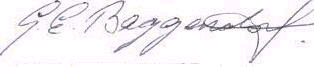 G. E. Baggendorf.